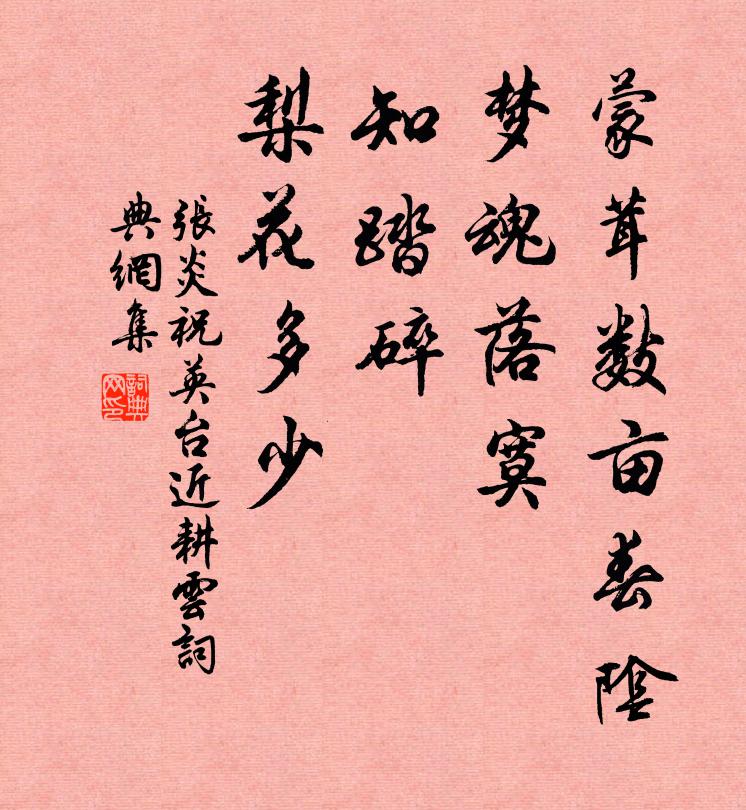 蒙茸数亩春阴
梦魂落寞
知踏碎
梨花多少
張炎祝英台近耕雲詞
典網集
詞典網印